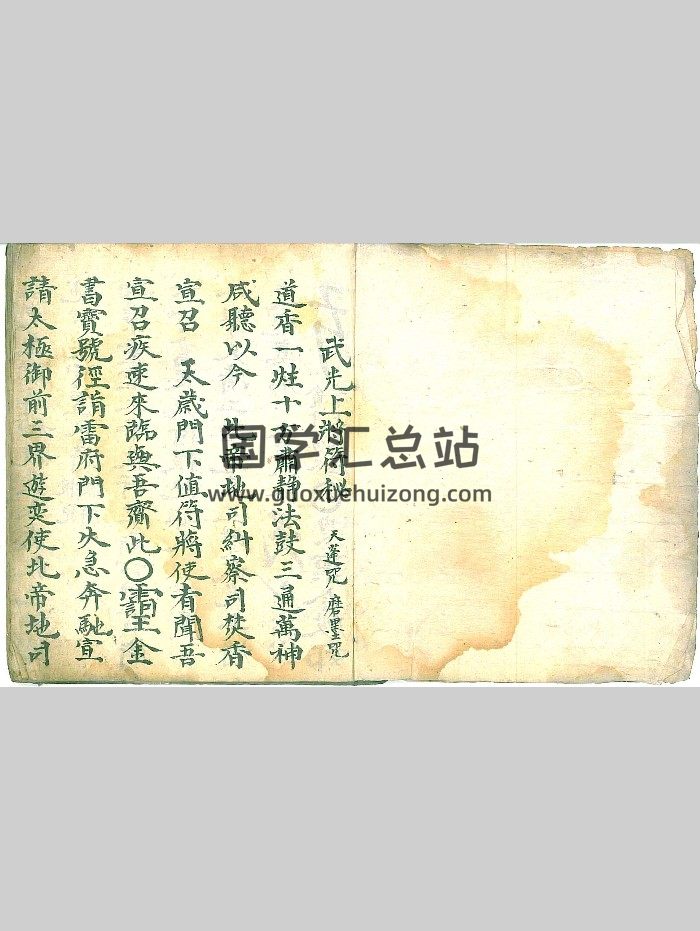 武光上將符秘 天蓬咒 磨墨咒
道香一炷十方肅靜法鼓三通萬神
咸聽以今 北帝地司糾察司焚香
宣召 太歲門下值符將使者聞吾
宣召疾速來臨與吾齎此〇金
書寶號徑詣雷府門下火急奔馳宣
請太極御前三界遊奕使北帝地司
国学汇总站
www.guoxuehuizong.com